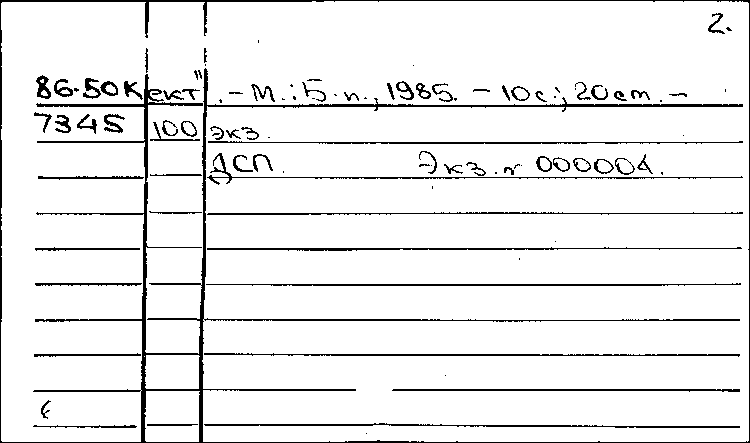 2.
86-50К ект". – М.: Б. и., 1985. – 10 с.; 20 см. –
7345 100 экз.
ДСП. Экз. № 000004.